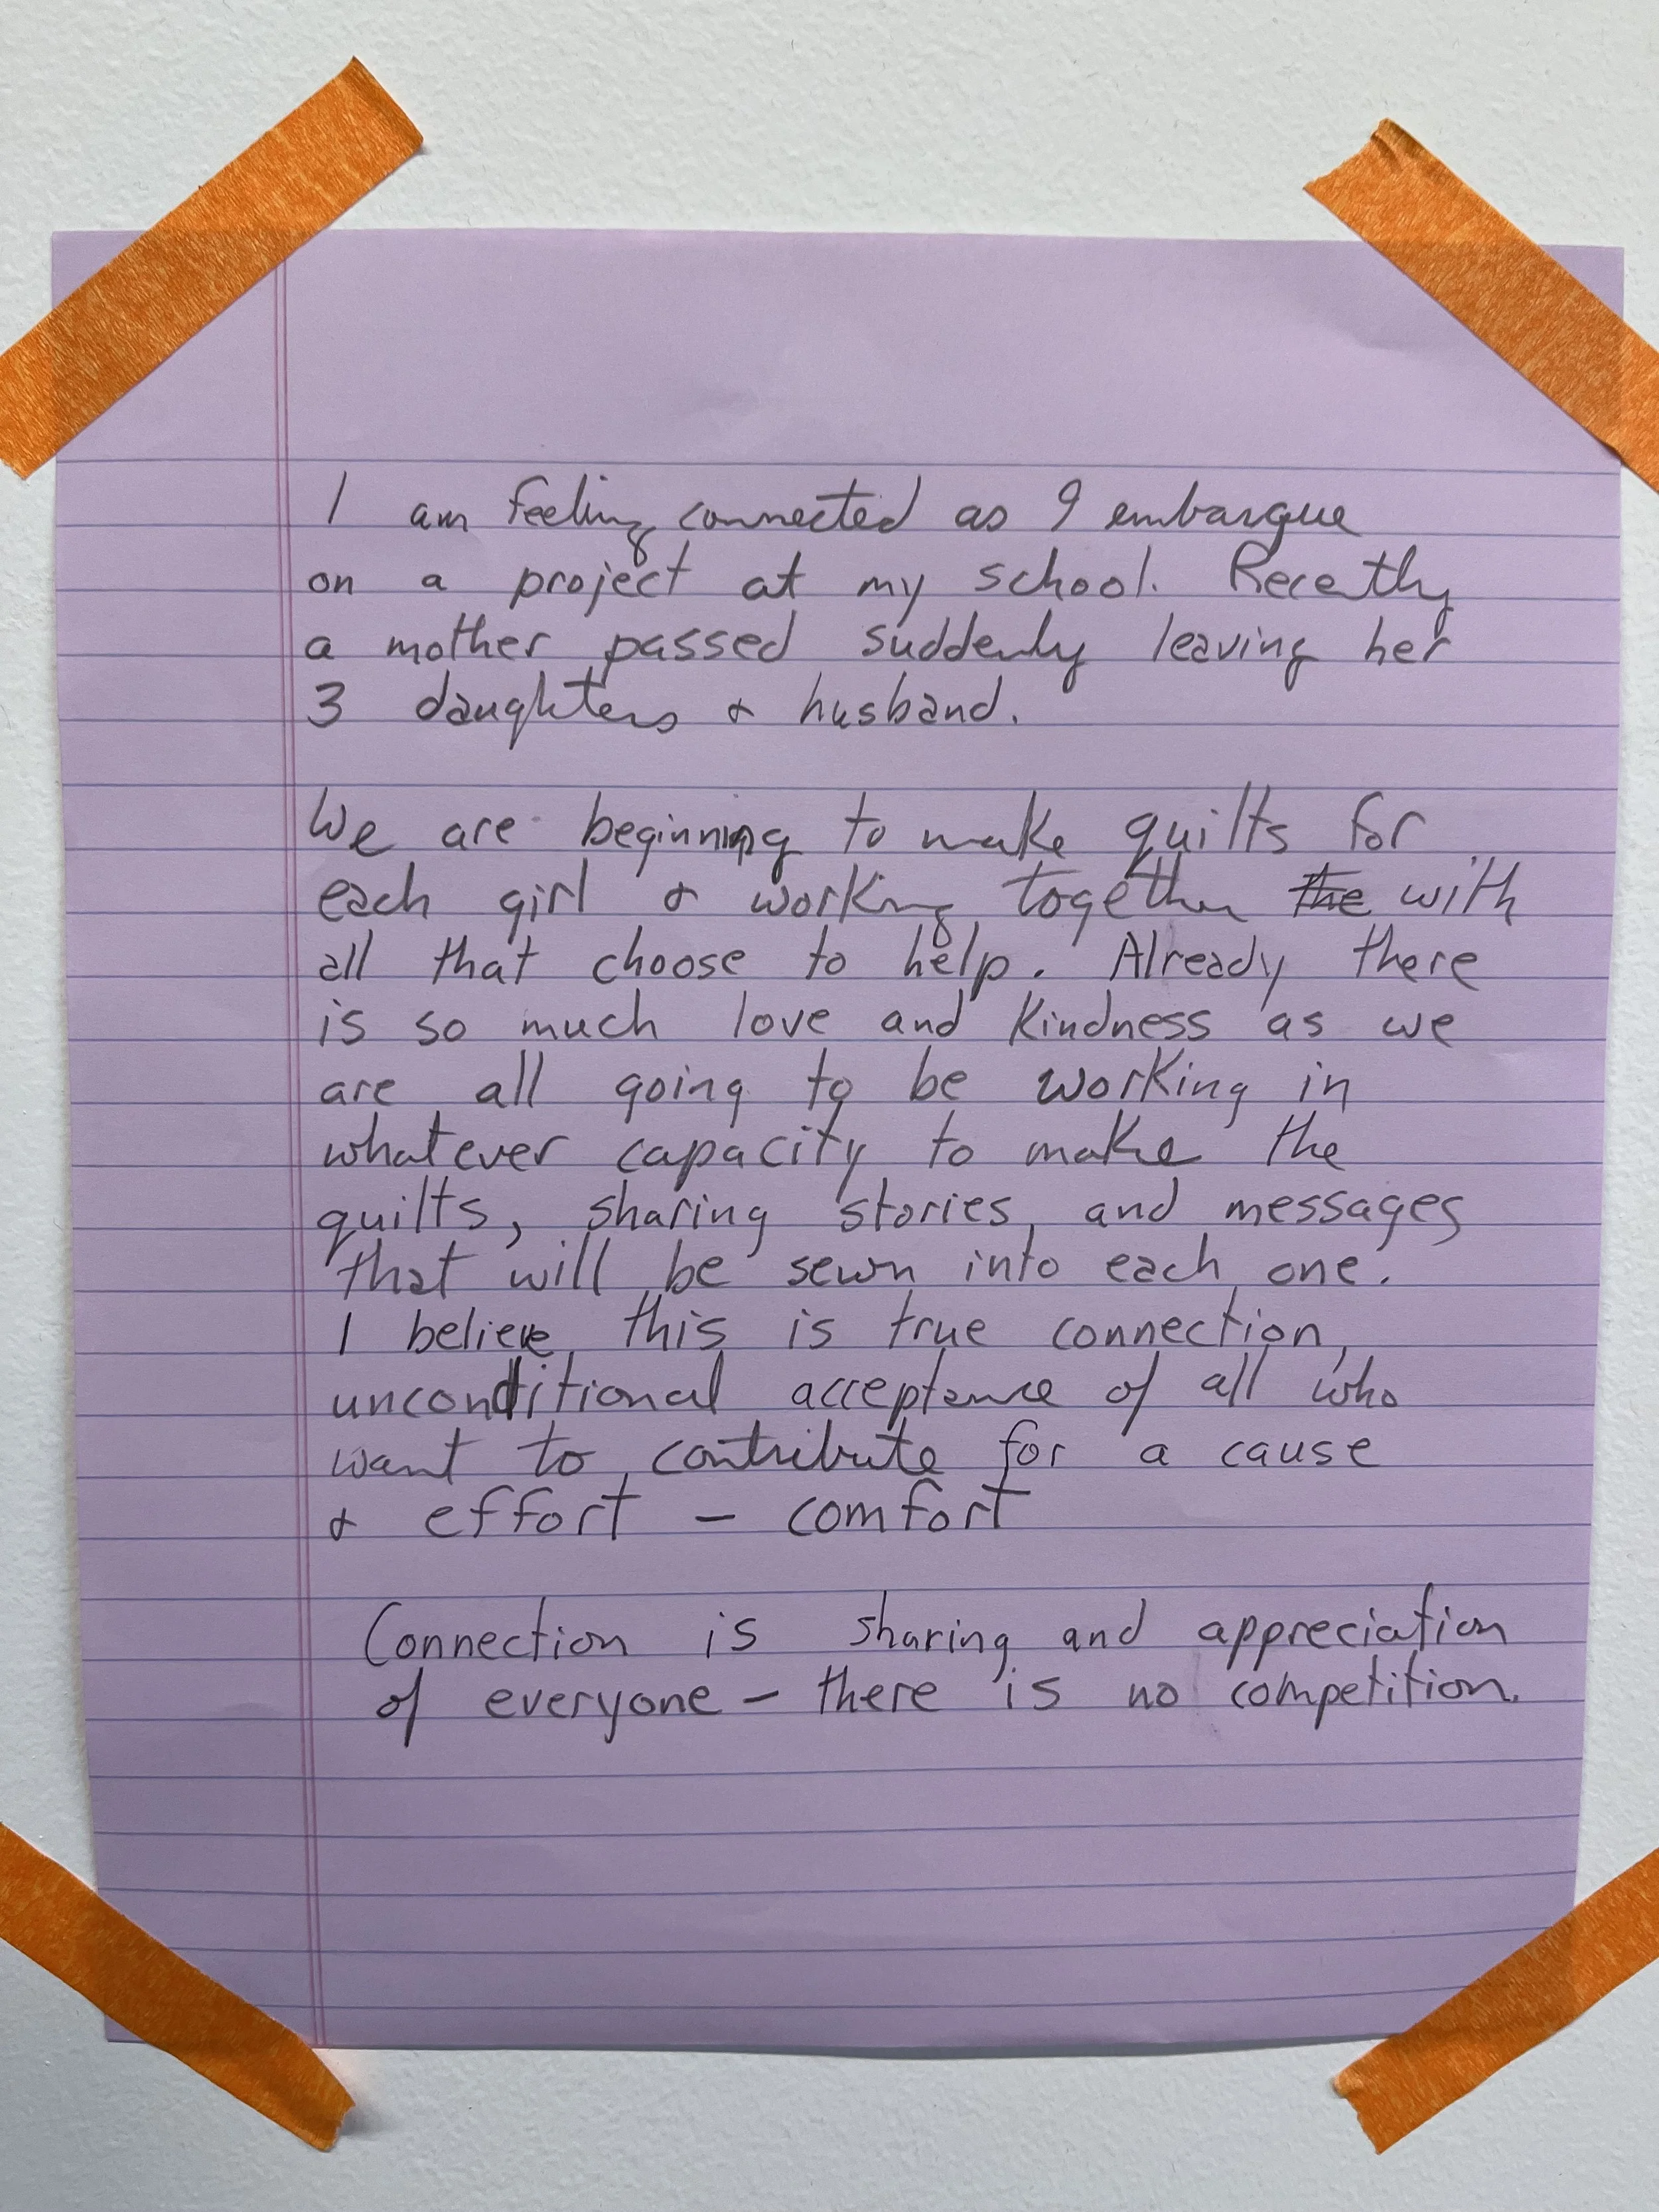 I am feeling connected as I embarque
on a project at my school. Recently
a mother passed suddenly leaving her
3 daughters & husband.
We are beginning to make quilts for
each girl & working together the with
all that choose to help. Already there
is so much love and kindness as we
are all going to be working in
whatever capacity to make the
quilts, sharing stories, and messages
that will be sewn into each one.
I believe this is true connection,
unconditional acceptance of all who
want to contribute for a cause
& effort – comfort
Connection is sharing and appreciation
of everyone – there is no competition.